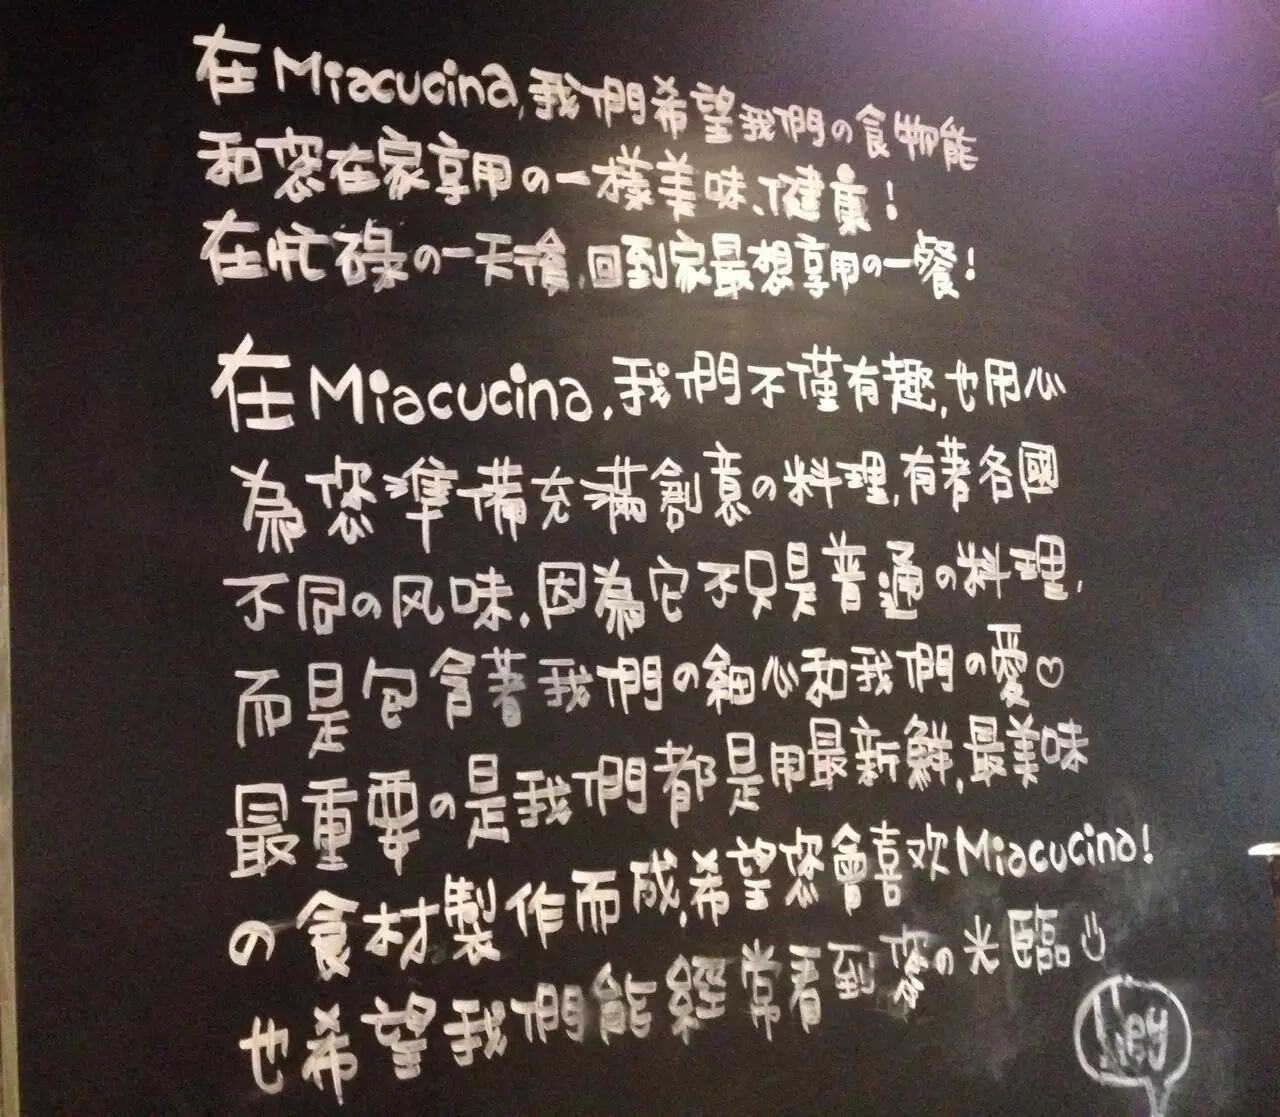 在Miacucina,我們希望我們の食物能
和您在家享用の一樣美味、健康!
在忙碌の一天後,回到家最想享用の一餐!
在Miacucina,我們不僅有趣,也用心
為您準備充滿創意の料理,有著各國
不同の风味,因為它不只是普通の料理,
而是包含著我們の細心和我們の愛♡
最重要の是我們都是用最新鮮,最美味
の食材製作而成,希望您會喜欢Miacucina!
也希望我們能經常看到您の光臨
Hey